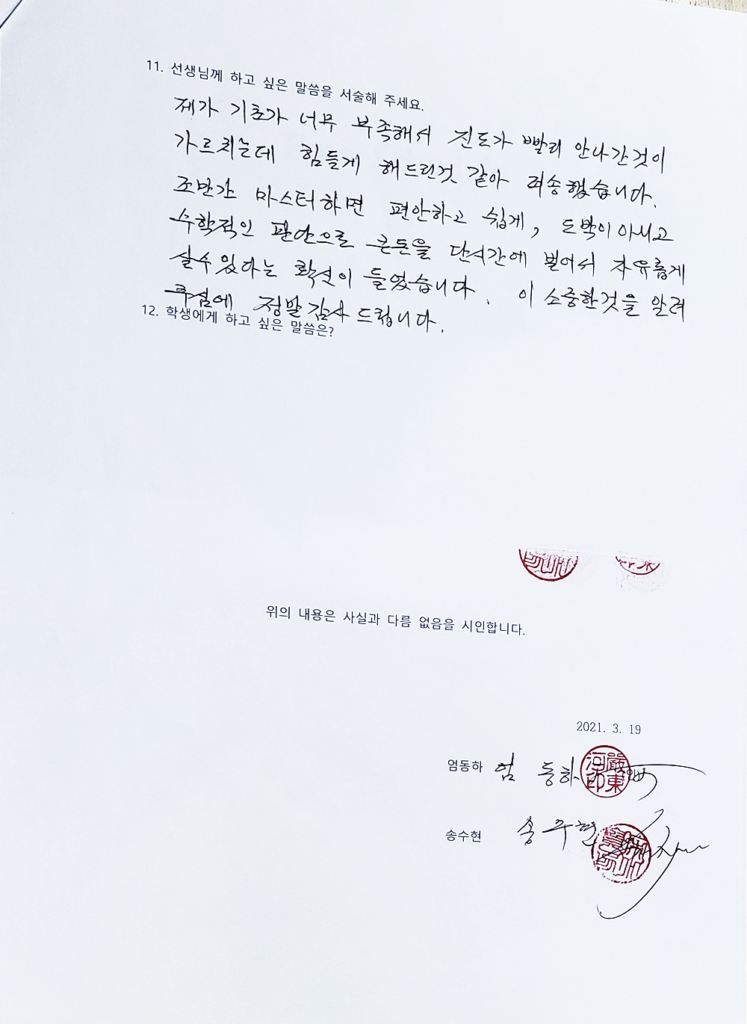 11. 선생님께 하고 싶은 말씀을 서술해 주세요.
제가 기초가 너무 부족해서 진도가 빨리 안나간것이
가르치는데 힘들게 해드린것 같아 죄송했습니다.
조만간 마스터하면 편안하고 쉽게, 도박이 아니고
수학적인 판단으로 큰돈을 단시간에 벌어서 자유롭게
살수있다는 확신이 들었습니다. 이 소중한것을 알려
주심에 정말 감사드립니다.
12. 학생에게 하고 싶은 말씀은?
위의 내용은 사실과 다름 없음을 시인합니다.
2021. 3. 19
엄동하 엄 동하 嚴東河印
송수현 송수현